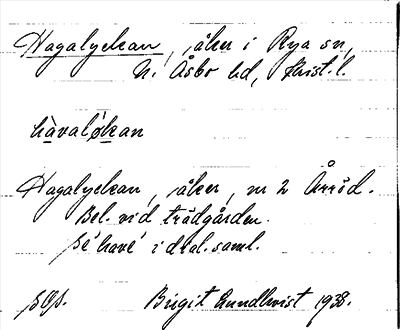 Hagalyckan, åker i Rya sn,
N. Åsbo hd, Krist. l.
hàvaløkan
Hagalyckan, åker, nr 2 Årröd.
Bel. vid trädgården.
Se 'have' i dial. saml.
Birgit Sundkvist 1938.